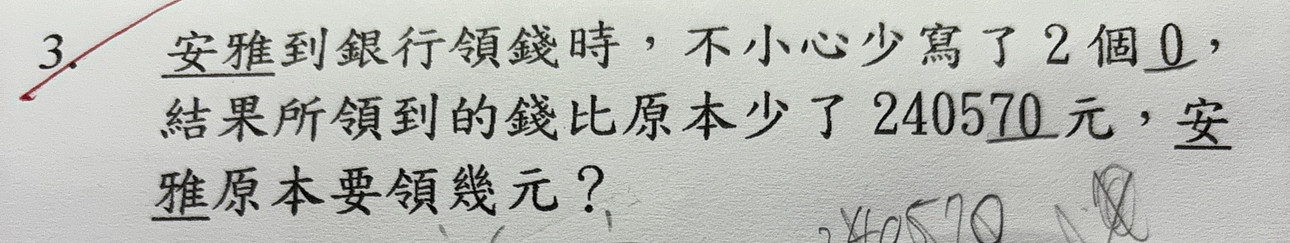 3. 安雅到銀行領錢時，不小心少寫了2個0，
結果所領到的錢比原本少了240570元，安
雅原本要領幾元？
240570